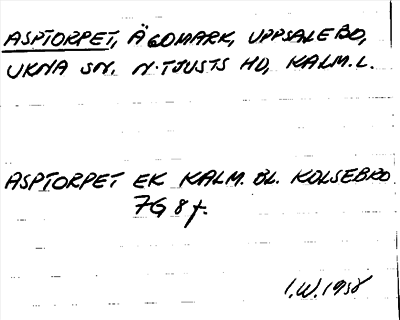 ASPTORPET, ÄGOMARK, UPPSALEBO,
UKNA SN. N. TJUSTS HD, KALM. L.
ASPTORPET EK KALM. BL. KOLSEBRO
7G 8f.
I.W. 1958